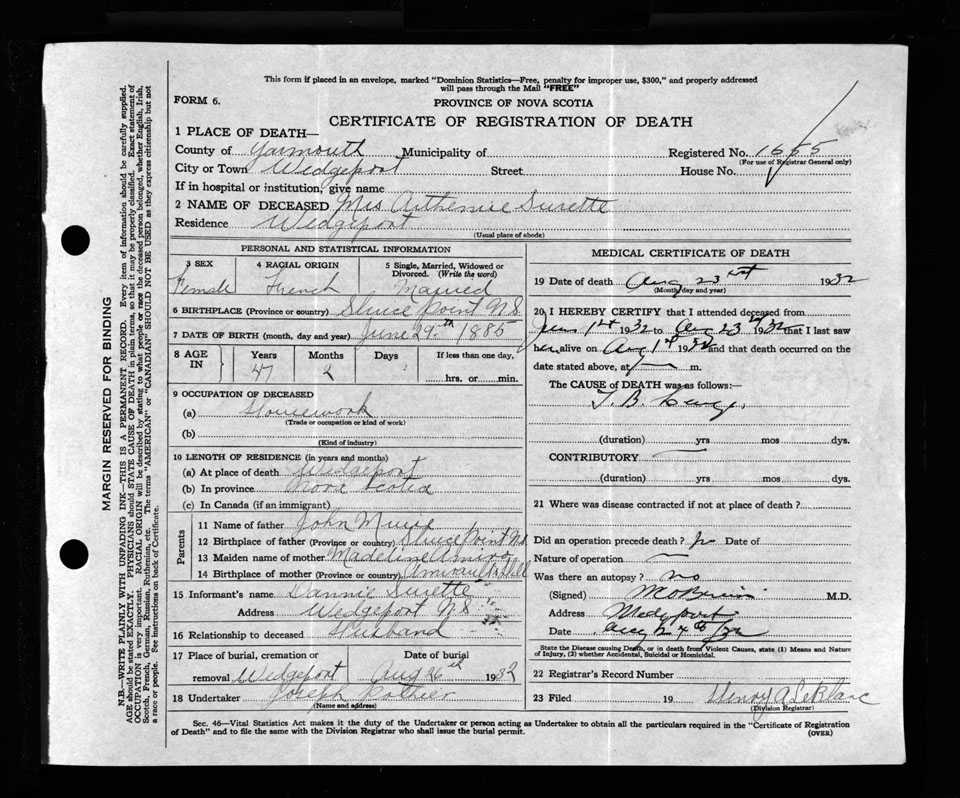 This form if placed in an envelope, marked "Dominion Statistics—Free, penalty for improper use, $300," and properly addressed
will pass through the Mail "FREE"
FORM 6.
PROVINCE OF NOVA SCOTIA
CERTIFICATE OF REGISTRATION OF DEATH
1 PLACE OF DEATH—
County of Yarmouth Municipality of Registered No. 1655
(For use of Registrar General only)
City or Town Wedgeport Street House No.
If in hospital or institution, give name
2 NAME OF DECEASED Mrs Arthemie Surette
Residence Wedgeport
(Usual place of abode)
PERSONAL AND STATISTICAL INFORMATION
3 SEX 4 RACIAL ORIGIN 5 Single, Married, Widowed or
Divorced. (Write the word)
Female French Married
6 BIRTHPLACE (Province or country) Sluice Point N S
7 DATE OF BIRTH (month, day and year) June 29th 1885
8 AGE IN Years Months Days If less than one day,
47 2 hrs. or min.
9 OCCUPATION OF DECEASED
(a) Housework
(Trade or occupation or kind of work)
(b)
(Kind of industry)
10 LENGTH OF RESIDENCE (in years and months)
(a) At place of death Wedgeport
(b) In province Nova Scotia
(c) In Canada (if an immigrant)
Parents
11 Name of father John Muise
12 Birthplace of father (Province or country) Sluice Point N S
13 Maiden name of mother Madeline Amiro
14 Birthplace of mother (Province or country) Amirault's Hill
15 Informant's name Dannie Surette
Address Wedgeport N S
16 Relationship to deceased Husband
17 Place of burial, cremation or Date of burial
removal Wedgeport Aug 26th 1932
18 Undertaker Joseph Pothier
(Name and address)
MEDICAL CERTIFICATE OF DEATH
19 Date of death Aug 23 1932
(Month, day and year)
20 I HEREBY CERTIFY that I attended deceased from
1932 to Aug 23 1932 that I last saw
her alive on Aug 1932 and that death occurred on the
date stated above, at m.
The CAUSE OF DEATH was as follows:—
T. B. Lungs
(duration) yrs mos dys.
CONTRIBUTORY
(duration) yrs mos dys.
21 Where was disease contracted if not at place of death?
Did an operation precede death? no Date of
Nature of operation
Was there an autopsy? no
(Signed) M.D.
Address Wedgeport
Date Aug 24th/32
State the Disease causing Death, or in death from Violent Causes, state (1) Means and Nature
of Injury, (2) whether Accidental, Suicidal or Homicidal.
22 Registrar's Record Number
23 Filed 19 Henry A LeBlanc
(Division Registrar)
Sec. 46—Vital Statistics Act makes it the duty of the Undertaker or person acting as Undertaker to obtain all the particulars required in the "Certificate of Registration
of Death" and to file the same with the Division Registrar who shall issue the burial permit.
(OVER)
MARGIN RESERVED FOR BINDING
N.B.—WRITE PLAINLY WITH UNFADING INK—THIS IS A PERMANENT RECORD. Every item of information should be carefully supplied.
AGE should be stated EXACTLY. PHYSICIANS should STATE CAUSE OF DEATH in plain terms, so that it may be properly classified. Exact statement of
OCCUPATION is very important. RACIAL ORIGIN will be described by stating to what people or race the deceased person belonged, whether English, Irish,
Scotch, French, German, Russian, Ruthenian, etc. The terms "AMERICAN" or "CANADIAN" SHOULD NOT BE USED as they express citizenship but not
a race or people. See instructions on back of Certificate.